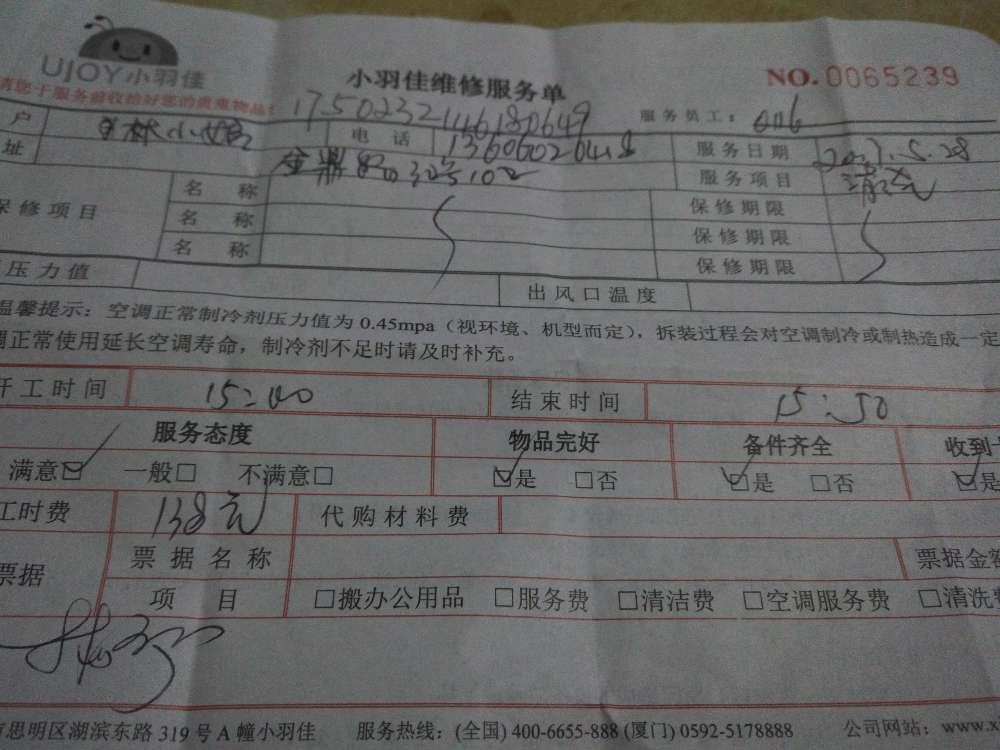 UJOY小羽佳
小羽佳维修服务单
NO.0065239
请您于服务前收拾好您的贵重物品
服务员工：
户
电话
服务日期 2017.5.28
址
金鼎 102
服务项目 清洗
保修项目
名称
保修期限
名称
保修期限
名称
保修期限
压力值
出风口温度
温馨提示：空调正常制冷剂压力值为 0.45mpa（视环境、机型而定），拆装过程会对空调制冷或制热造成一定
调正常使用延长空调寿命，制冷剂不足时请及时补充。
开工时间 15:00 结束时间 15:50
服务态度 物品完好 备件齐全 收到
满意☑ 一般□ 不满意□ ☑是 □否 ☑是 □否 ☑是
工时费 138元 代购材料费
票据 票据名称 票据金额
项目 □搬办公用品 □服务费 □清洁费 □空调服务费 □清洗费
市思明区湖滨东路 319 号 A 幢小羽佳 服务热线：(全国) 400-6655-888 (厦门) 0592-5178888 公司网站：www.x